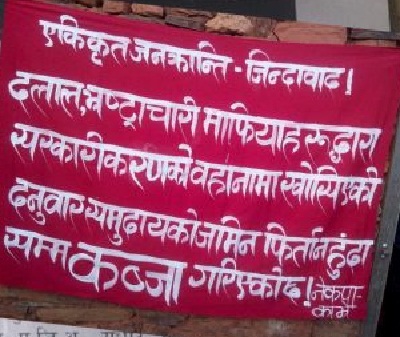 एकिकृत जनक्रान्ति - जिन्दावाद !
दलाल, भ्रष्ट्राचारी माफियाहरूद्वारा
सरकारीकरणको वहानामा खोसिएको
दनुवार समुदायको जमिन फिर्ता नहुंदा
सम्म कब्जा गरिस्कोद !
नेकपा-